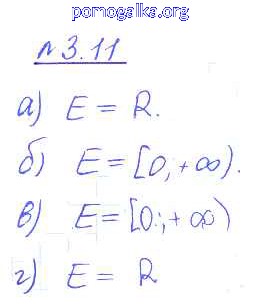 pomogalka.org
№3.11
а) E = R.
б) E = [0; +∞).
в) E = [0; +∞)
г) E = R